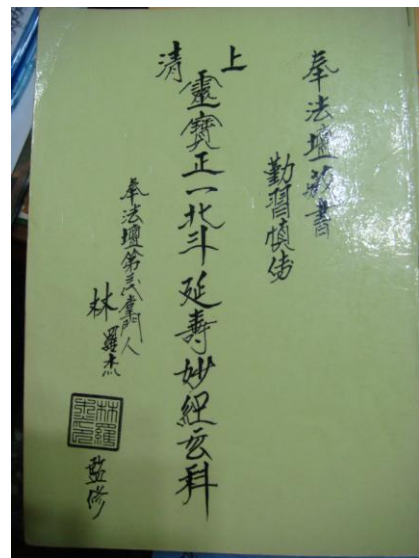 奉法壇藏書
勤習慎傳
上清
靈寶正一北斗延壽妙經玄科
奉法壇第代掌門人
林羅杰
監修